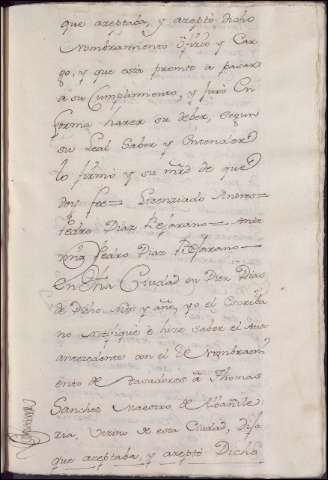 que aceptaba, y aceptó dicho
Nombramiento Oficio y Car-
go, y que está promto a pasar
a su Cumplimiento, y juró en
forma hacer su deber, segun
su Leal Saber y Entender
lo firmó y su mrd de que
doy fee = Licenziado Andres
Pedro Diaz Bejarano = Ante
mi Pedro Diaz Bejarano =
En dha Ciudad en Diez Dias
de Dicho mes y año, yo el Escriba
no notifiqué e hice saber el Auto
antecedente con el de Nombram
iento de Tasadores á Thomas
Sanchez Maestro de Albañile
ria, Vecino de esta Ciudad, Dijo
que aceptaba, y aceptó Dicho